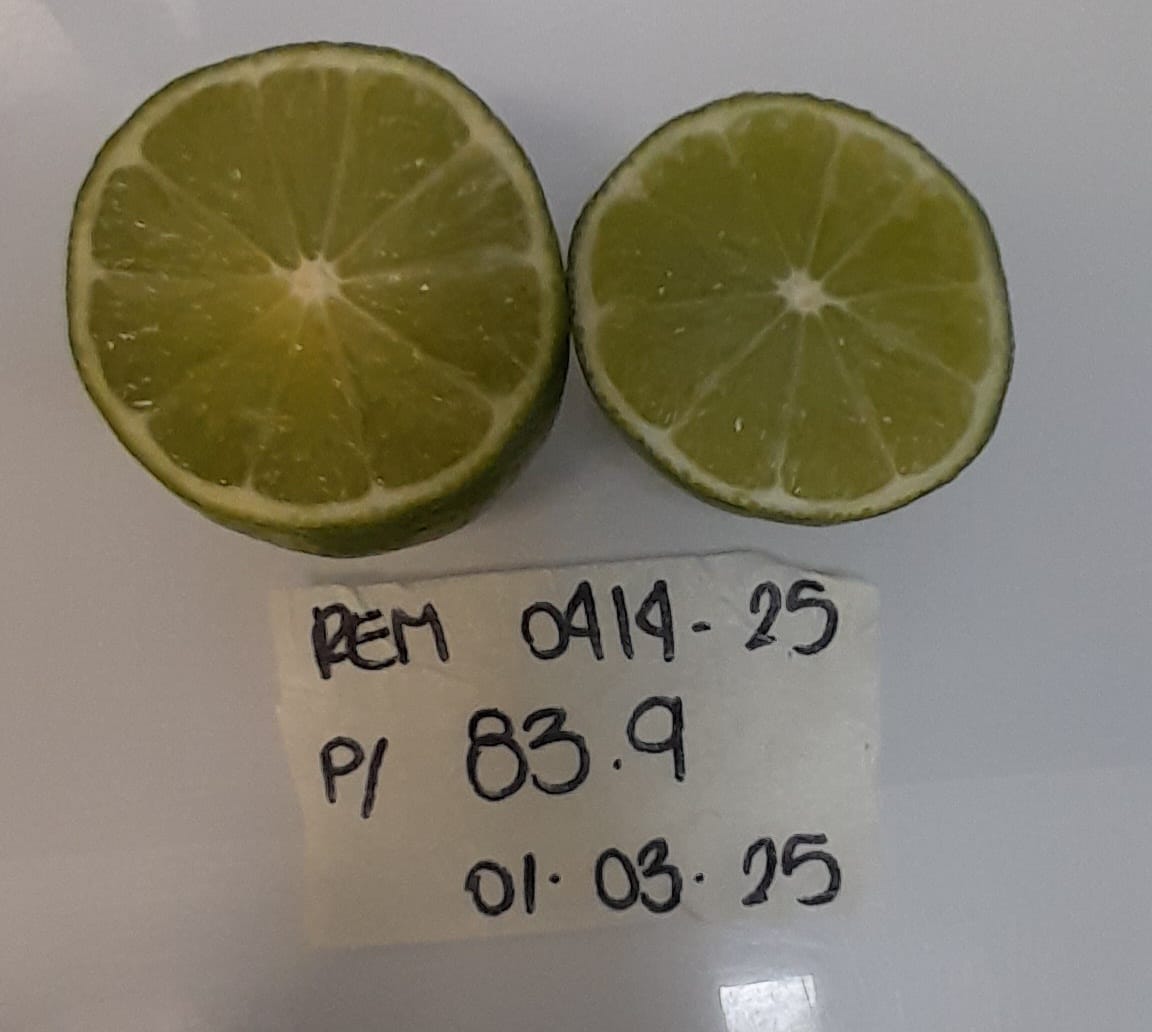 REM 0414-25
P/ 83.9
01.03.25